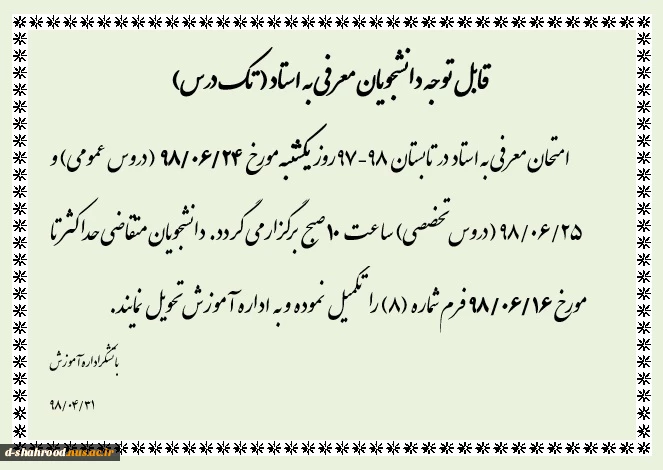 قابل توجه دانشجویان معرفی به استاد (تک درس)
امتحان معرفی به استاد در تابستان ۹۸-۹۷ روز یکشنبه مورخ ۹۸/۰۶/۲۴ (دروس عمومی) و
۹۸/۰۶/۲۵ (دروس تخصصی) ساعت ۱۰ صبح برگزار می گردد. دانشجویان متقاضی حداکثر تا
مورخ ۹۸/۰۶/۱۶ فرم شماره (۸) را تکمیل نموده و به اداره آموزش تحویل نمایند.
باتشکر اداره آموزش
۹۸/۰۴/۳۱
d-shahrood.nus.ac.ir